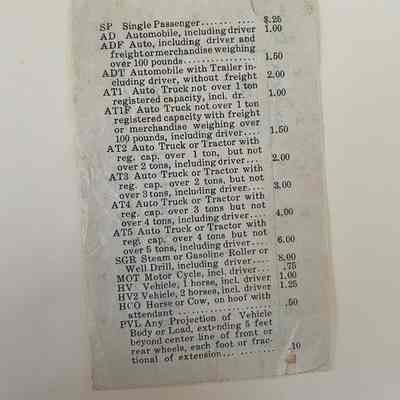 SP Single Passenger........ .... $.25
AD Automobile, including driver 1.00
ADF Auto, including driver and
freight or merchandise weighing
over 100 pounds................ 1.50
ADT Automobile with Trailer in-
cluding driver, without freight 2.00
AT1 Auto Truck not over 1 ton
registered capacity, incl. dr. 1.00
AT1F Auto Truck not over 1 ton
registered capacity with freight
or merchandise weighing over
100 pounds, including driver.... 1.50
AT2 Auto Truck or Tractor with
reg. cap. over 1 ton, but not
over 2 tons, including driver.... 2.00
AT3 Auto Truck or Tractor with
reg. cap. over 2 tons, but not
over 3 tons, including driver.... 3.00
AT4 Auto Truck or Tractor with
reg. cap. over 3 tons but not
over 4 tons, including driver.... 4.00
AT5 Auto Truck or Tractor with
reg. cap. over 4 tons but not
over 5 tons, including driver.... 6.00
SGR Steam or Gasoline Roller or
Well Drill, including driver.... 8.00
MOT Motor Cycle, incl. driver... .75
HV Vehicle, 1 horse, incl. driver 1.00
HV2 Vehicle, 2 horses, incl. driver 1.25
HCO Horse or Cow, on hoof with
attendant ..................... .50
PVL Any Projection of Vehicle
Body or Load, extending 5 feet
beyond center line of front or
rear wheels, each foot or frac-
tional of extension... ........ .10